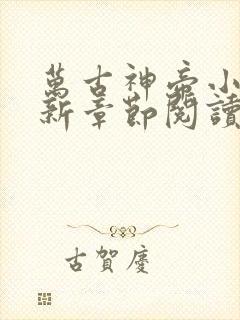 萬古神帝小
新章節閱讀
古賀慶